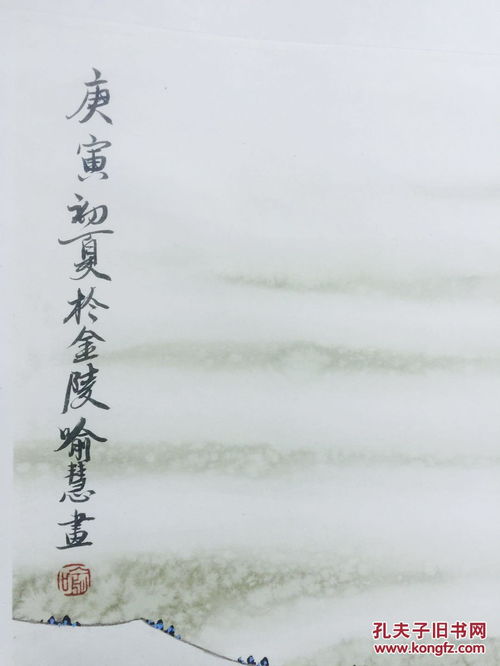 庚寅初夏於金陵喻慧畫
喻
孔夫子旧书网
www.kongfz.com